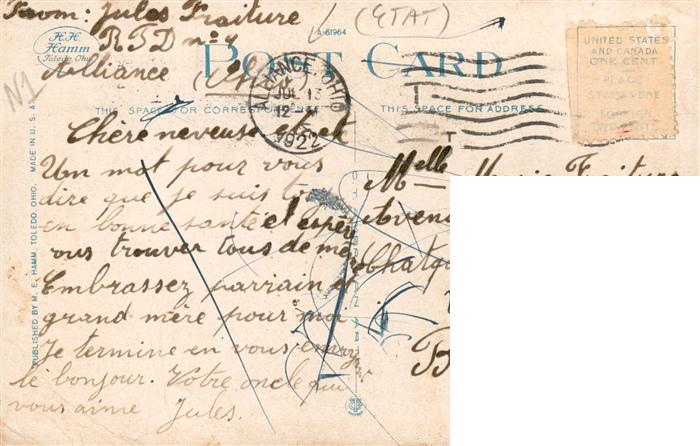 From: Jules Fraiture
RFD no 4
Alliance (Ohio
(ETAT)
A-61964
H.H.
Hamm
Toledo, Ohio
N1
POST CARD
ALLIANCE, OHIO
JUL 13
12 M
1922
UNITED STATES
AND CANADA
ONE CENT
PLACE
STAMP HERE
THIS SPACE FOR CORRESPONDENCE
THIS SPACE FOR ADDRESS
PUBLISHED BY M. E. HAMM, TOLEDO, OHIO. MADE IN U. S. A.
Chère neveuse
Un mot pour vous
dire que je suis
en bonne santé et espér
vous trouver tous de mê
Embrassez parrain et
grand mère pour moi
Je termine en vous envoy
le bonjour. Votre oncle qui
vous aime Jules.
Melle Marie Fraiture
Aven
Chatq
B